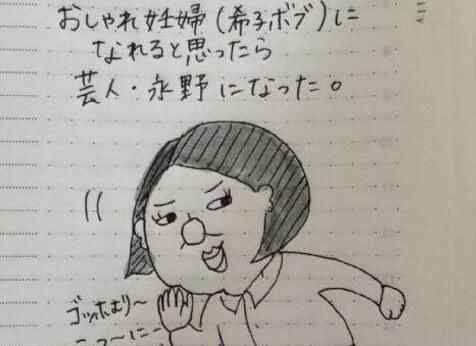 おしゃれ妊婦(希子ボブ)に
なれると思ったら
芸人・永野になった。
ゴッホより〜